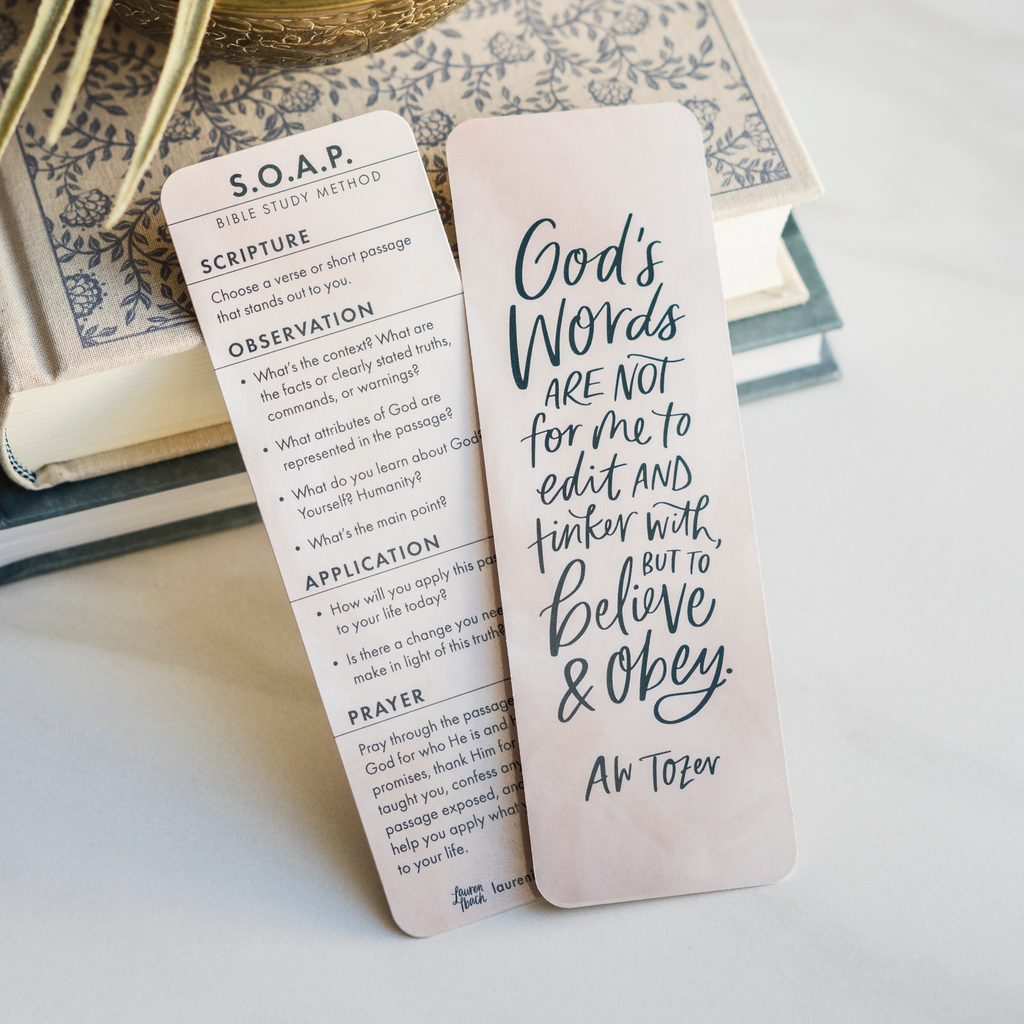 S.O.A.P.
BIBLE STUDY METHOD
SCRIPTURE
Choose a verse or short passage
that stands out to you.
OBSERVATION
• What's the context? What are
the facts or clearly stated truths,
commands, or warnings?
• What attributes of God are
represented in the passage?
• What do you learn about God?
Yourself? Humanity?
• What's the main point?
APPLICATION
• How will you apply this
to your life today?
• Is there a change you
make in light of this truth?
PRAYER
Pray through the passage
God for who He is and
promises, thank Him for
taught you, confess
passage exposed,
help you apply what
to your life.
Lauren
Ibach
God's
Words
ARE NOT
for me to
edit AND
tinker with,
BUT TO
believe
& obey.
AW TOZer